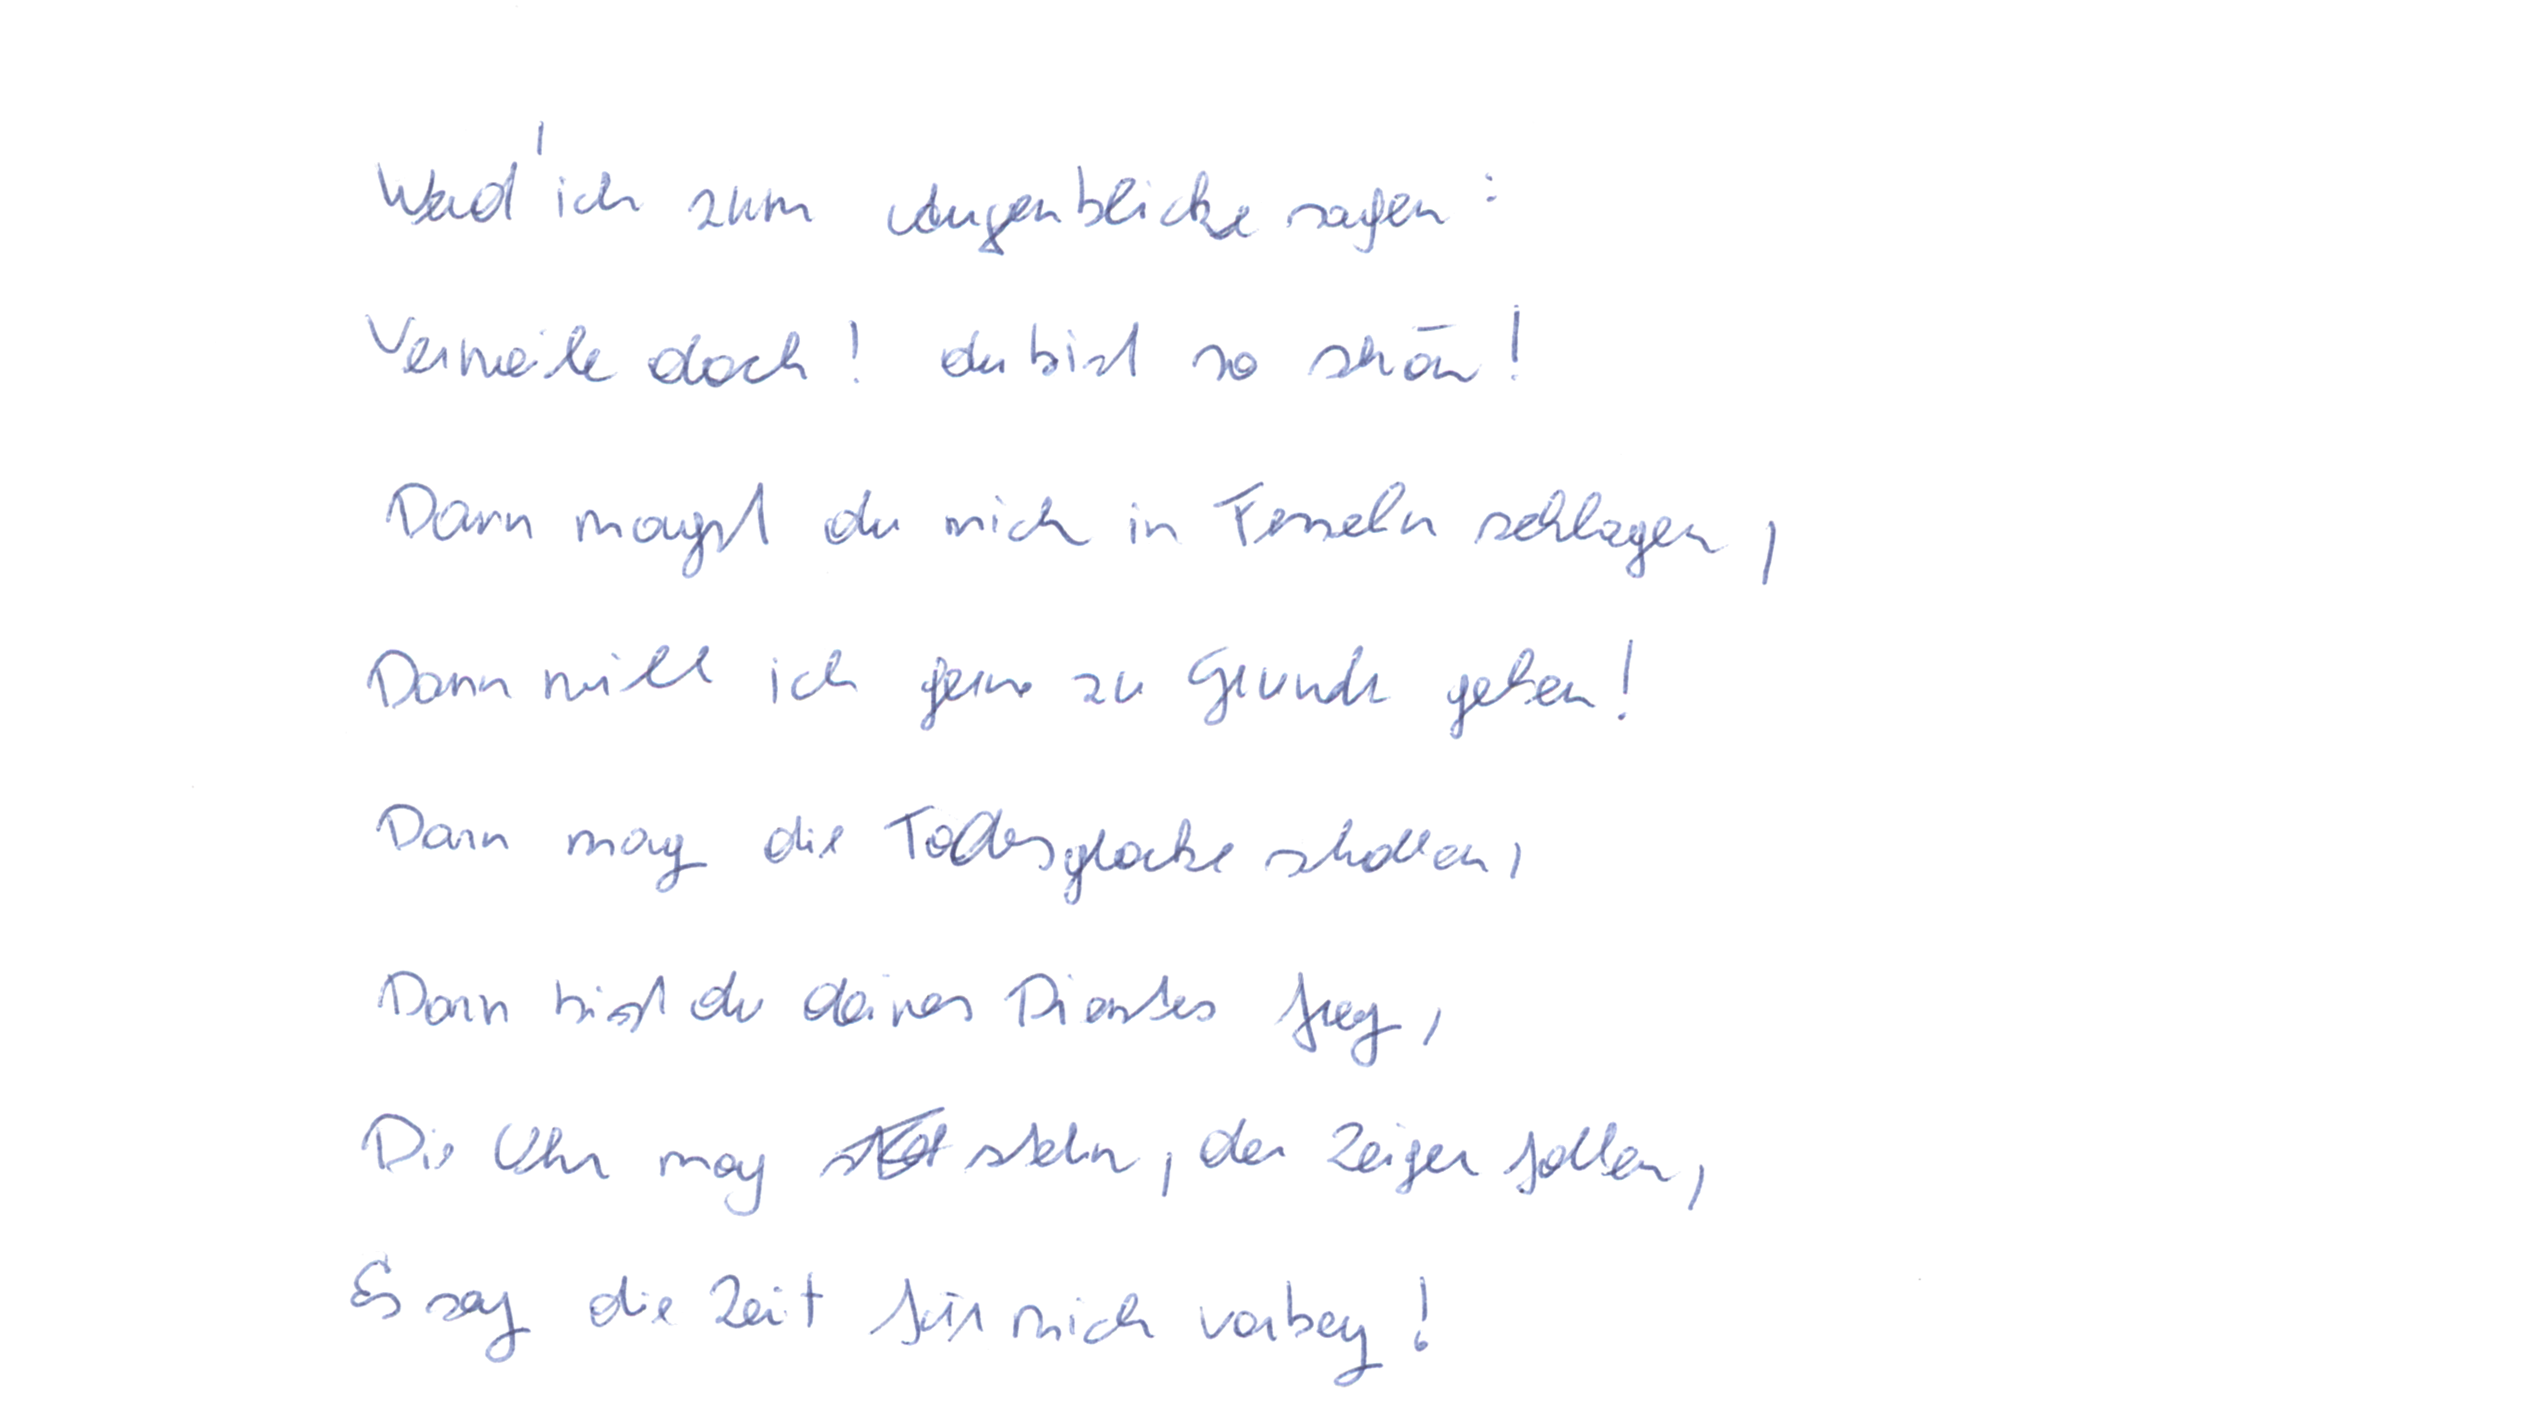 Werd' ich zum Augenblicke sagen:
Verweile doch! du bist so schön!
Dann magst du mich in Fesseln schlagen,
Dann will ich gern zu Grunde gehen!
Dann mag die Todesglocke schallen,
Dann bist du deines Dienstes frey,
Die Uhr mag stehn, der Zeiger fallen,
Es sey die Zeit für mich vorbey!